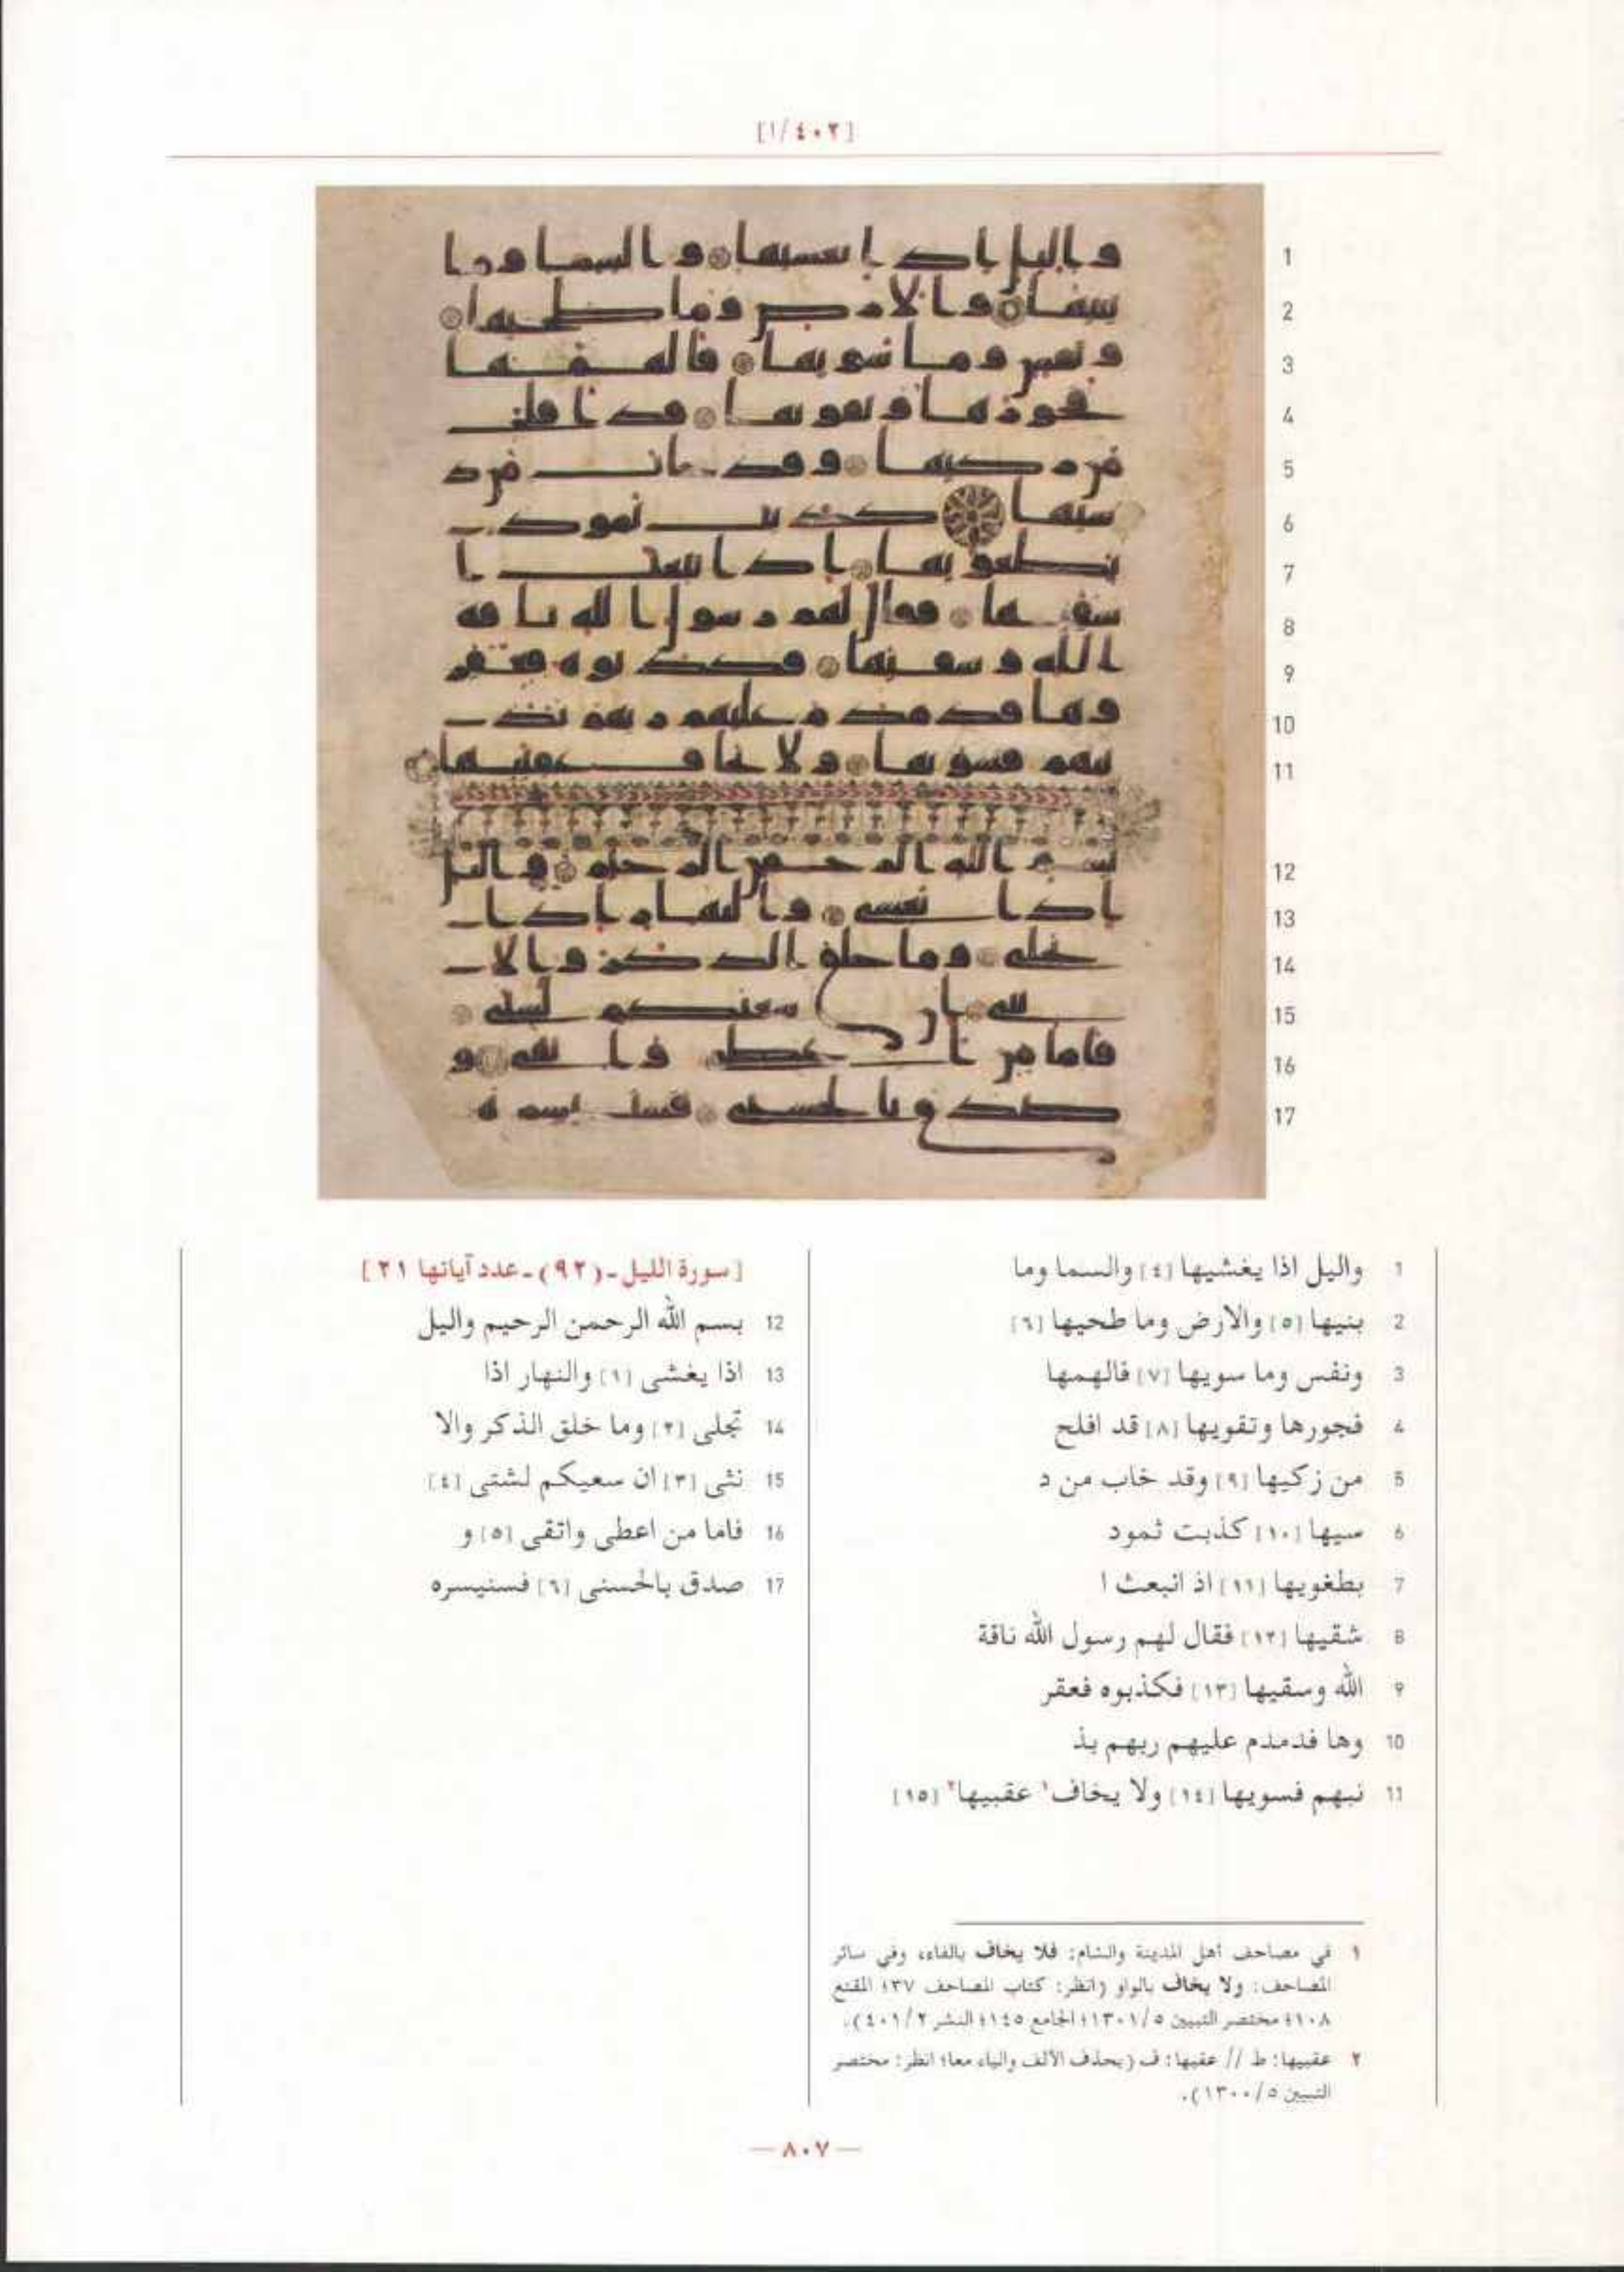 [١/٤٠٢]
1 واليل اذا يغشيها [٤] والسما وما
2 بنيها [٥] والارض وما طحيها [٦]
3 ونفس وما سويها [٧] فالهمها
4 فجورها وتقويها [٨] قد افلح
5 من زكيها [٩] وقد خاب من د
6 سيها [١٠] كذبت ثمود
7 بطغويها [١١] اذ انبعث ا
8 شقيها [١٢] فقال لهم رسول الله ناقة
9 الله وسقيها [١٣] فكذبوه فعقر
10 وها فدمدم عليهم ربهم بذ
11 نبهم فسويها [١٤] ولا يخاف١ عقبيها٢ [١٥]
[سورة الليل - (٩٢) - عدد آياتها ٢١]
12 بسم الله الرحمن الرحيم واليل
13 اذا يغشى [١] والنهار اذا
14 تجلى [٢] وما خلق الذكر والا
15 نثى [٣] ان سعيكم لشتى [٤]
16 فاما من اعطى واتقى [٥] و
17 صدق بالحسنى [٦] فسنيسره
١ في مصاحف أهل المدينة والشام: فلا يخاف بالفاء، وفي سائر
المصاحف: ولا يخاف بالواو (انظر: كتاب المصاحف ٣٧؛ المقنع
١٠٨؛ مختصر التبيين ١٣٠١/٥؛ الجامع ١٤٥؛ النشر ٤٠١/٢).
٢ عقبيها: ط // عقبها: ف (بحذف الألف والياء معا؛ انظر: مختصر
التبيين ١٣٠٠/٥).
— ٨٠٧ —